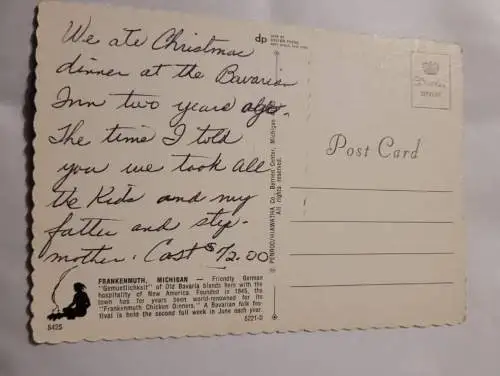 We ate Christmas
dinner at the Bavarian
Inn two years ago.
The time I told
you we took all
the Kids and my
father and step-
mother. Cost $72.00
FRANKENMUTH, MICHIGAN — Friendly German
"Gemuetlichkeit" of Old Bavaria blends here with the
hospitality of New America. Founded in 1845, the
town has for years been world-renowned for its
"Frankenmuth Chicken Dinners." A Bavarian folk fes-
tival is held the second full week in June each year.
842S
5221-D
dp
PENROD/HIAWATHA Co. - Berrien Center, Michigan
All rights reserved.
Post Card